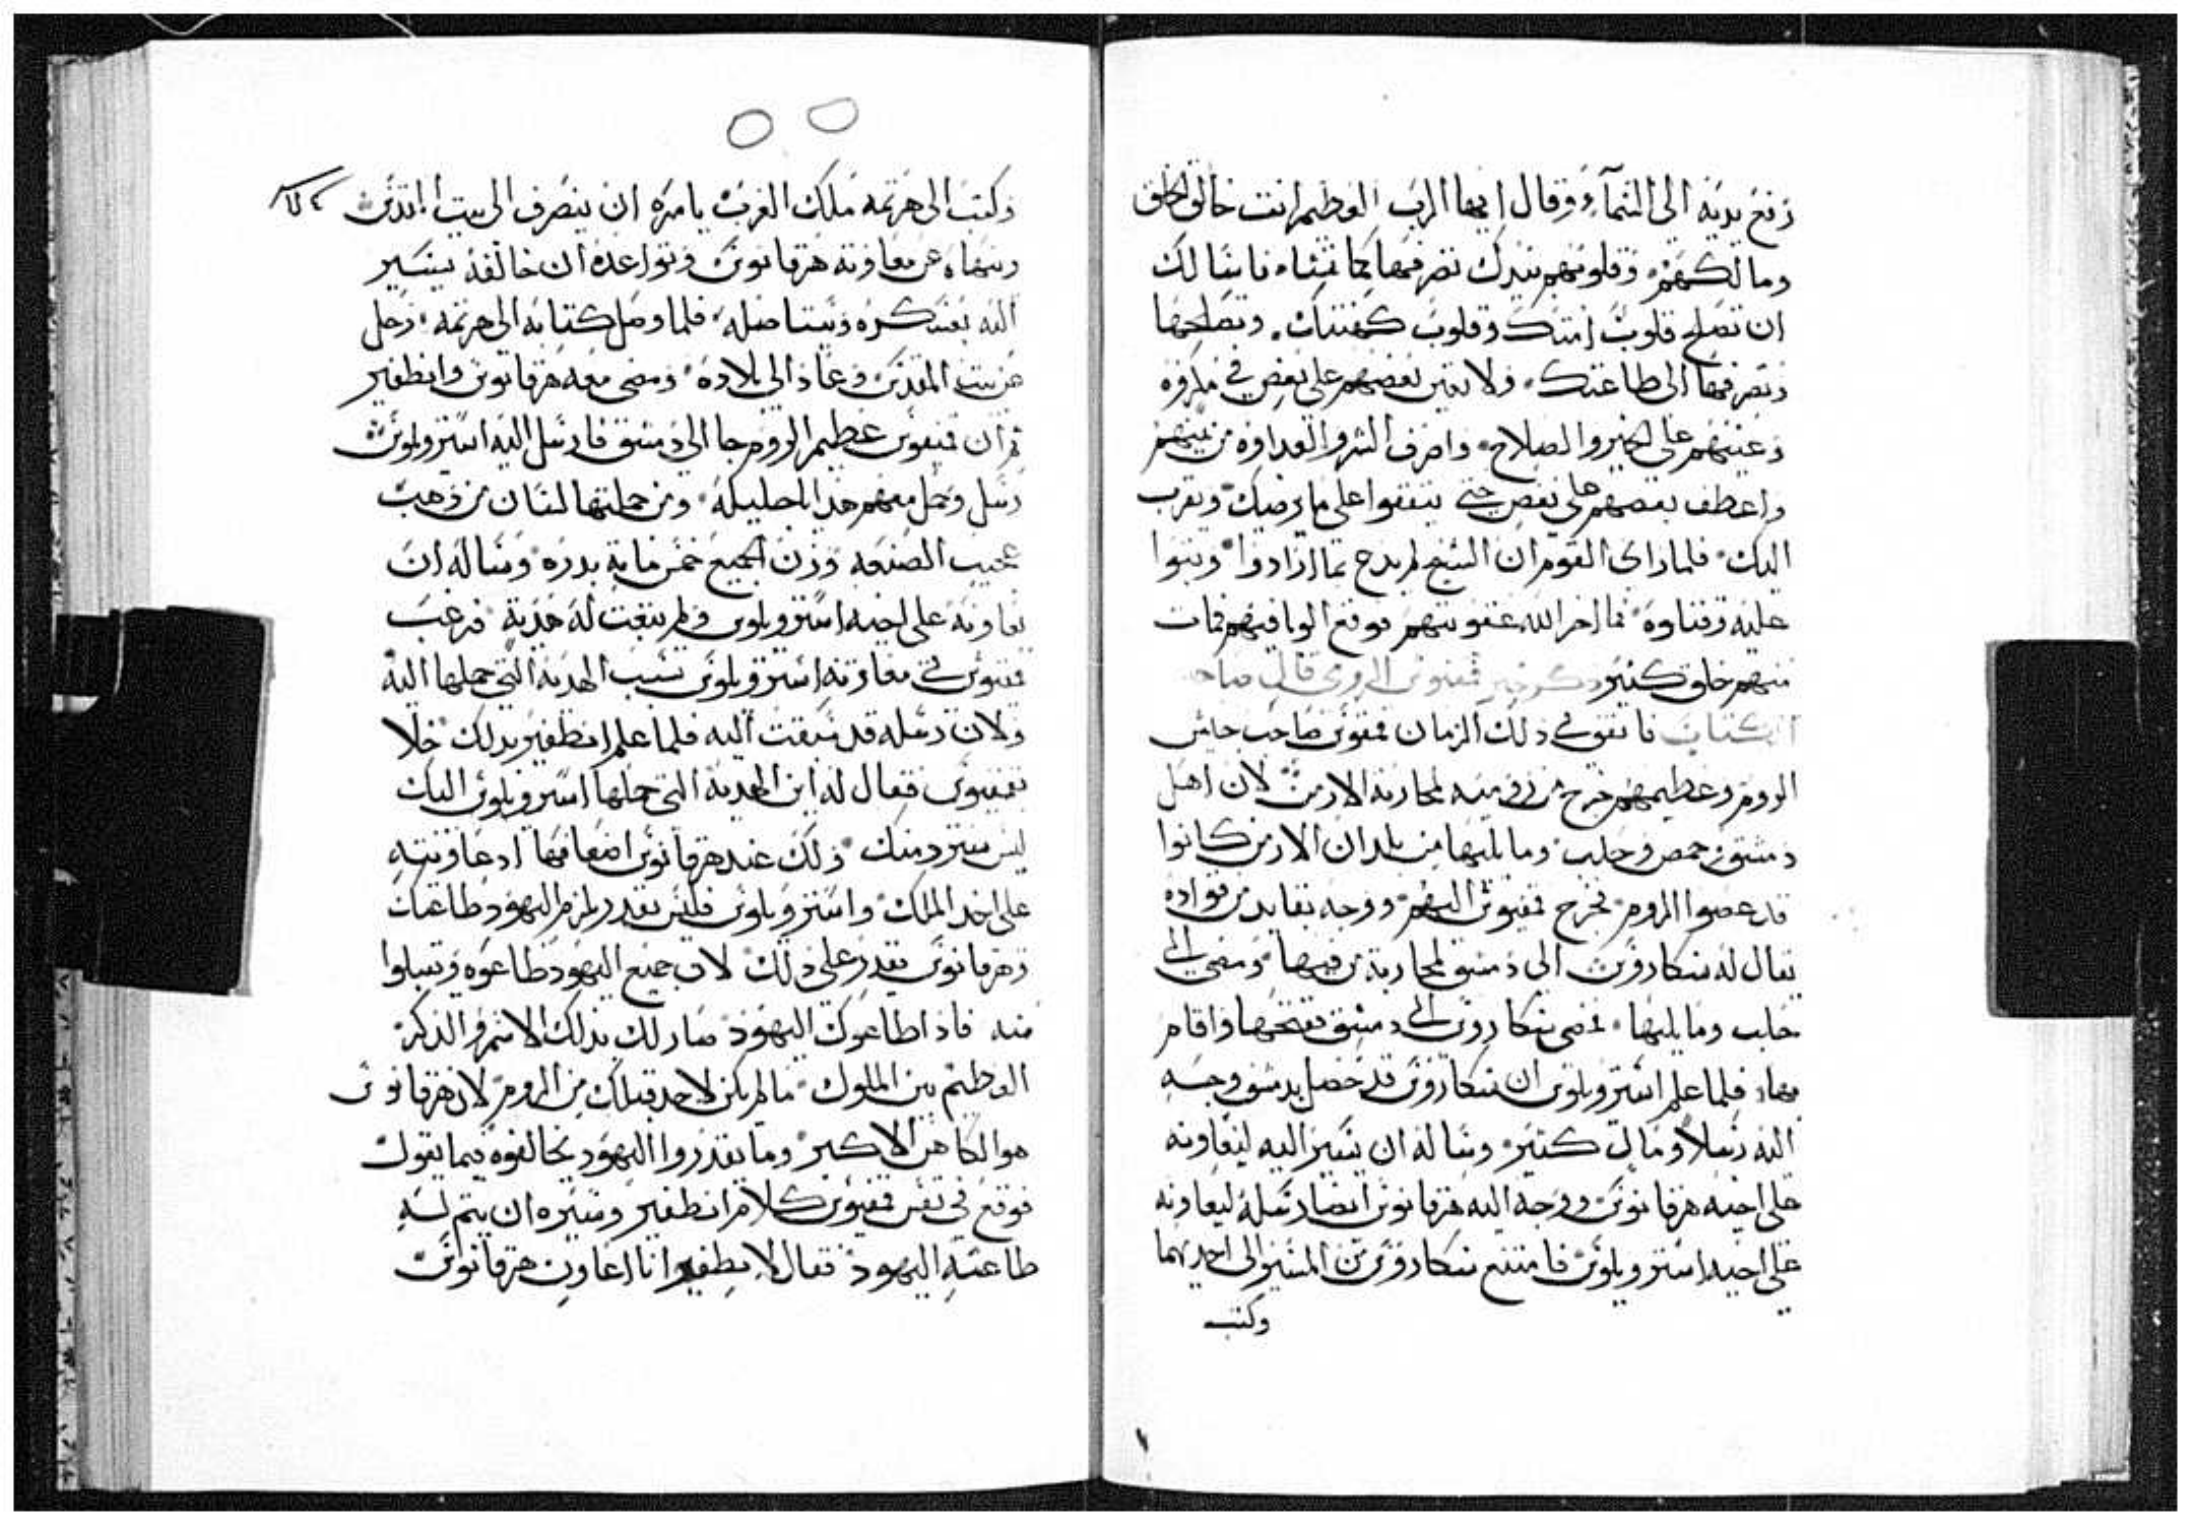 رفع يديه الى السماء وقال ايها الرب العظيم انت خالق الخلق
ومالكهم وقلوبهم بيدك تصرفها كما تشاء فاسالك
ان تصلح قلوب امتك وقلوب كهنتك وتصلحها
وتصرفها الى طاعتك ولا تعين بعضهم على بعض في مكروه
وعينهم على الخير والصلاح واصرف الشر والعداوه من بينهم
واعطف بعضهم على بعض حتى يتفقوا على ما يرضيك ويقرب
اليك فلما راى القوم ان الشيخ لم يدع بما ارادوا وثبوا
عليه وقتلوه فما اخر الله عقوبتهم فوقع الوبا فيهم فمات
منهم خلق كثير ذكر خبر فمفيوس الرومي قال صاحب
الكتاب فاتفق في ذلك الزمان فمفيوس صاحب جيش
الروم وعظيمهم خرج من روميه لمحاربة الارمن لان اهل
دمشق وحمص وحلب وما يليها من بلدان الارمن كانوا
قد عصوا الروم فخرج فمفيوس اليهم ووجه بقايد من قواده
يقال له سكاروس الى دمشق لمحاربة من فيها ومضى الى
حلب وما يليها فمضى سكاروس الى دمشق ففتحها واقام
بها فلما علم استروبلوس ان سكاروس قد حصل بدمشق وجه
اليه رسلا ومال كثير وساله ان يسير اليه ليعاونه
على اخيه هرقانوس ووجه اليه هرقانوس ايضا رسله ليعاونه
على اخيه استروبلوس فامتنع سكاروس من المسير الى احديهما
وكتب
وكتب الى هرثمه ملك العرب يامره ان ينصرف الى بيت المقدس
وينهاه عن معاونة هرقانوس وتواعده ان خالفه يسير
اليه بعسكره ويستاصله فلما وصل كتابه الى هرثمه رحل
عن بيت المقدس وعاد الى بلاده ومضى معه هرقانوس وانطفير
ثم ان فمفيوس عظيم الروم جا الى دمشق فارسل اليه استروبلوس
رسل وحمل معهم هدايا جليله ومن جملتها لسان من ذهب
عجيب الصنعه وزن الجميع خمس ماية بدره وساله ان
يعاونه على اخيه استروبلوس ولم يبعث له هدية فرغب
فمفيوس في معاونة استروبلوس بسبب الهدية التي حملها اليه
ولان رسله قد سبقت اليه فلما علم انطفير بذلك خلا
بفمفيوس فقال له ان الهدية التي حملها استروبلوس اليك
ليس تسترد منك ولك عند هرقانوس اضعافها اذ عاونته
على اخذ الملك واستروبلوس فليس يقدر يلزم اليهود طاعتك
وهرقانوس يقدر على ذلك لان جميع اليهود طاعوه وتقبلوا
منه فاذا اطاعوك اليهود صار لك بذلك الاسم والذكر
العظيم بين الملوك ما لم يكن لاحد قبلك من الروم لان هرقانوس
هو الكاهن الاكبر وما يقدروا اليهود يخالفوه فيما يقول
فوقع في نفس فمفيوس كلام انطفير وسره ان يتم له
طاعة اليهود فقال لانطفير انا اعاون هرقانوس